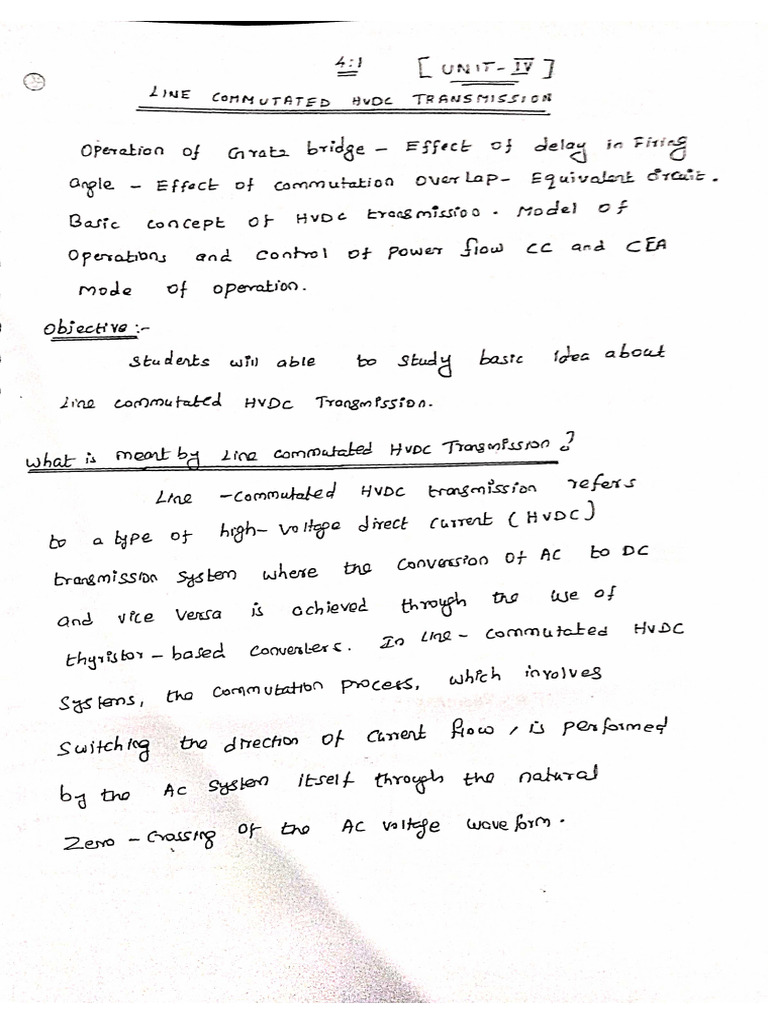 4:1 [UNIT-IV]
LINE COMMUTATED HVDC TRANSMISSION
Operation of Gratz bridge - Effect of delay in Firing
Angle - Effect of commutation overlap - Equivalent circuit.
Basic concept of HVDC transmission. Model of
Operations and control of power flow CC and CEA
Mode of operation.
Objective:-
Students will able to study basic idea about
Line commutated HVDC Transmission.
What is meant by Line commutated HVDC Transmission?
Line -commutated HVDC transmission refers
to a type of high-voltage direct current (HVDC)
transmission system where the conversion of AC to DC
and vice versa is achieved through the use of
thyristor-based converters. In Line-commutated HVDC
systems, the commutation process, which involves
switching the direction of current flow, is performed
by the AC system itself through the natural
Zero-Crossing of the AC voltage waveform.